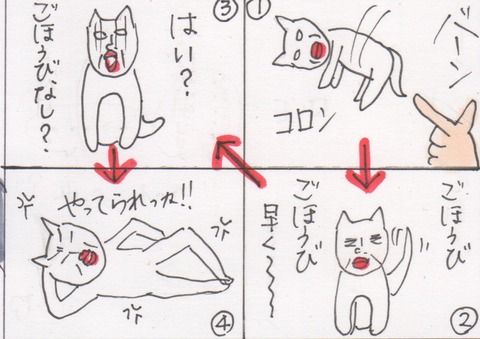 ①
バーン
コロン
ごほうび
ごほうび
早く〜〜〜
②
③
はい？
ごほうび、なし？
やってられっか!!
④